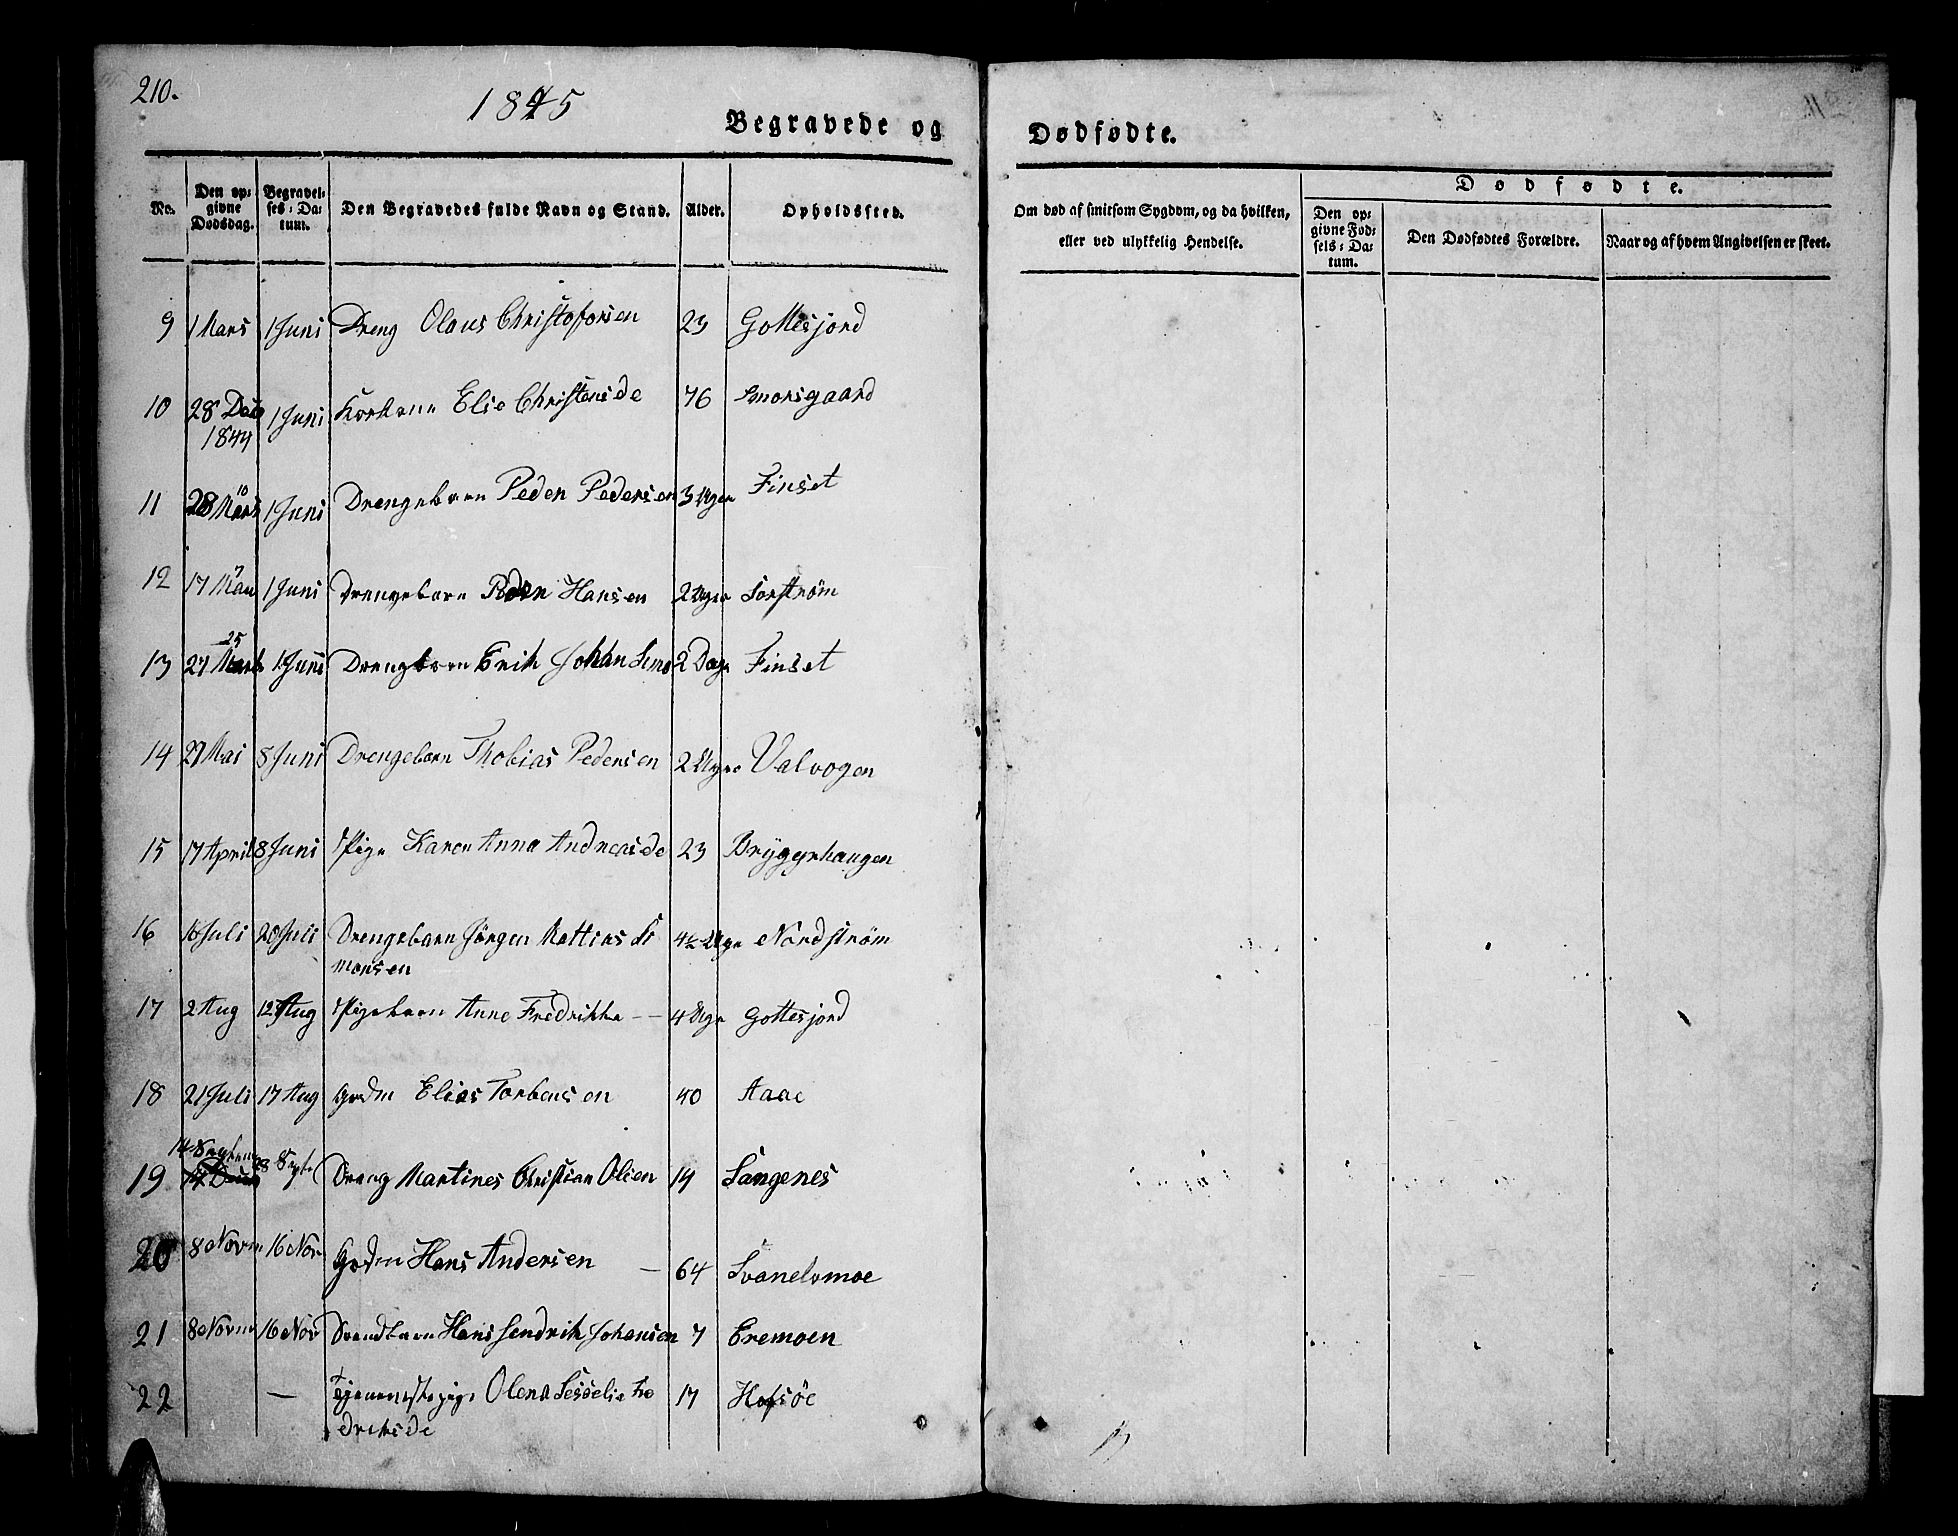 210.
1845
Begravede og
Dødfødte.
No.
Den op-
givne
Dødsdag.
Begravel-
ses-Da-
tum.
Den Begravedes fulde Navn og Stand.
Alder.
Opholdssted.
Om død af smitsom Sygdom, og da hvilken,
eller ved ulykkelig Hendelse.
Dødfødte.
Den op-
givne Fød-
sels-Da-
tum.
Den Dødfødtes Forældre.
Naar og af hvem Angivelsen er skeet.
9 1 Mars 1 Juni Dreng Olaus Christofersen 23 Gottesjord
10 28 Dec 1 Juni Elie Christensde 76 Smorsgaard
1844
11 28 Mars 1 Juni Drengebarn Peder Pedersen 3 Uger Finset
12 17 1 Juni Drengebarn Peder Hansen 2 Uger Sorstrøm
25
13 27 1 Juni Drengbarn Erik Johan 2 Dage Finset
14 27 Mai 8 Juni Drengebarn Thobias Pedersen 2 Uger Valvogen
15 17 April 8 Juni Pige Karen Anna Andreasde 23 Bryggerhaugen
16 16 Juli 20 Juli Drengebarn Jörgen Mattias Si 4½ Uge Nordström
monsen
17 2 Aug 12 Aug Pigebarn Anne Fredrikke — 4 Uger Gottesjord
18 21 Juli 17 Aug Grdm Elias Torbensen 40 Aaae
14 Septemb
19 28 Sept Dreng Martines Christian Olsen 14 Sangenes
20 8 Novm 16 Nov Grdm Hans Andersen — 64 Svanelvmoe
21 8 Novm 16 Nov Hans Hendrik Johansen 7 Eremoen
22 — Tjenestepige Olena Sesselia Fre 17 Hofsöe
driksde